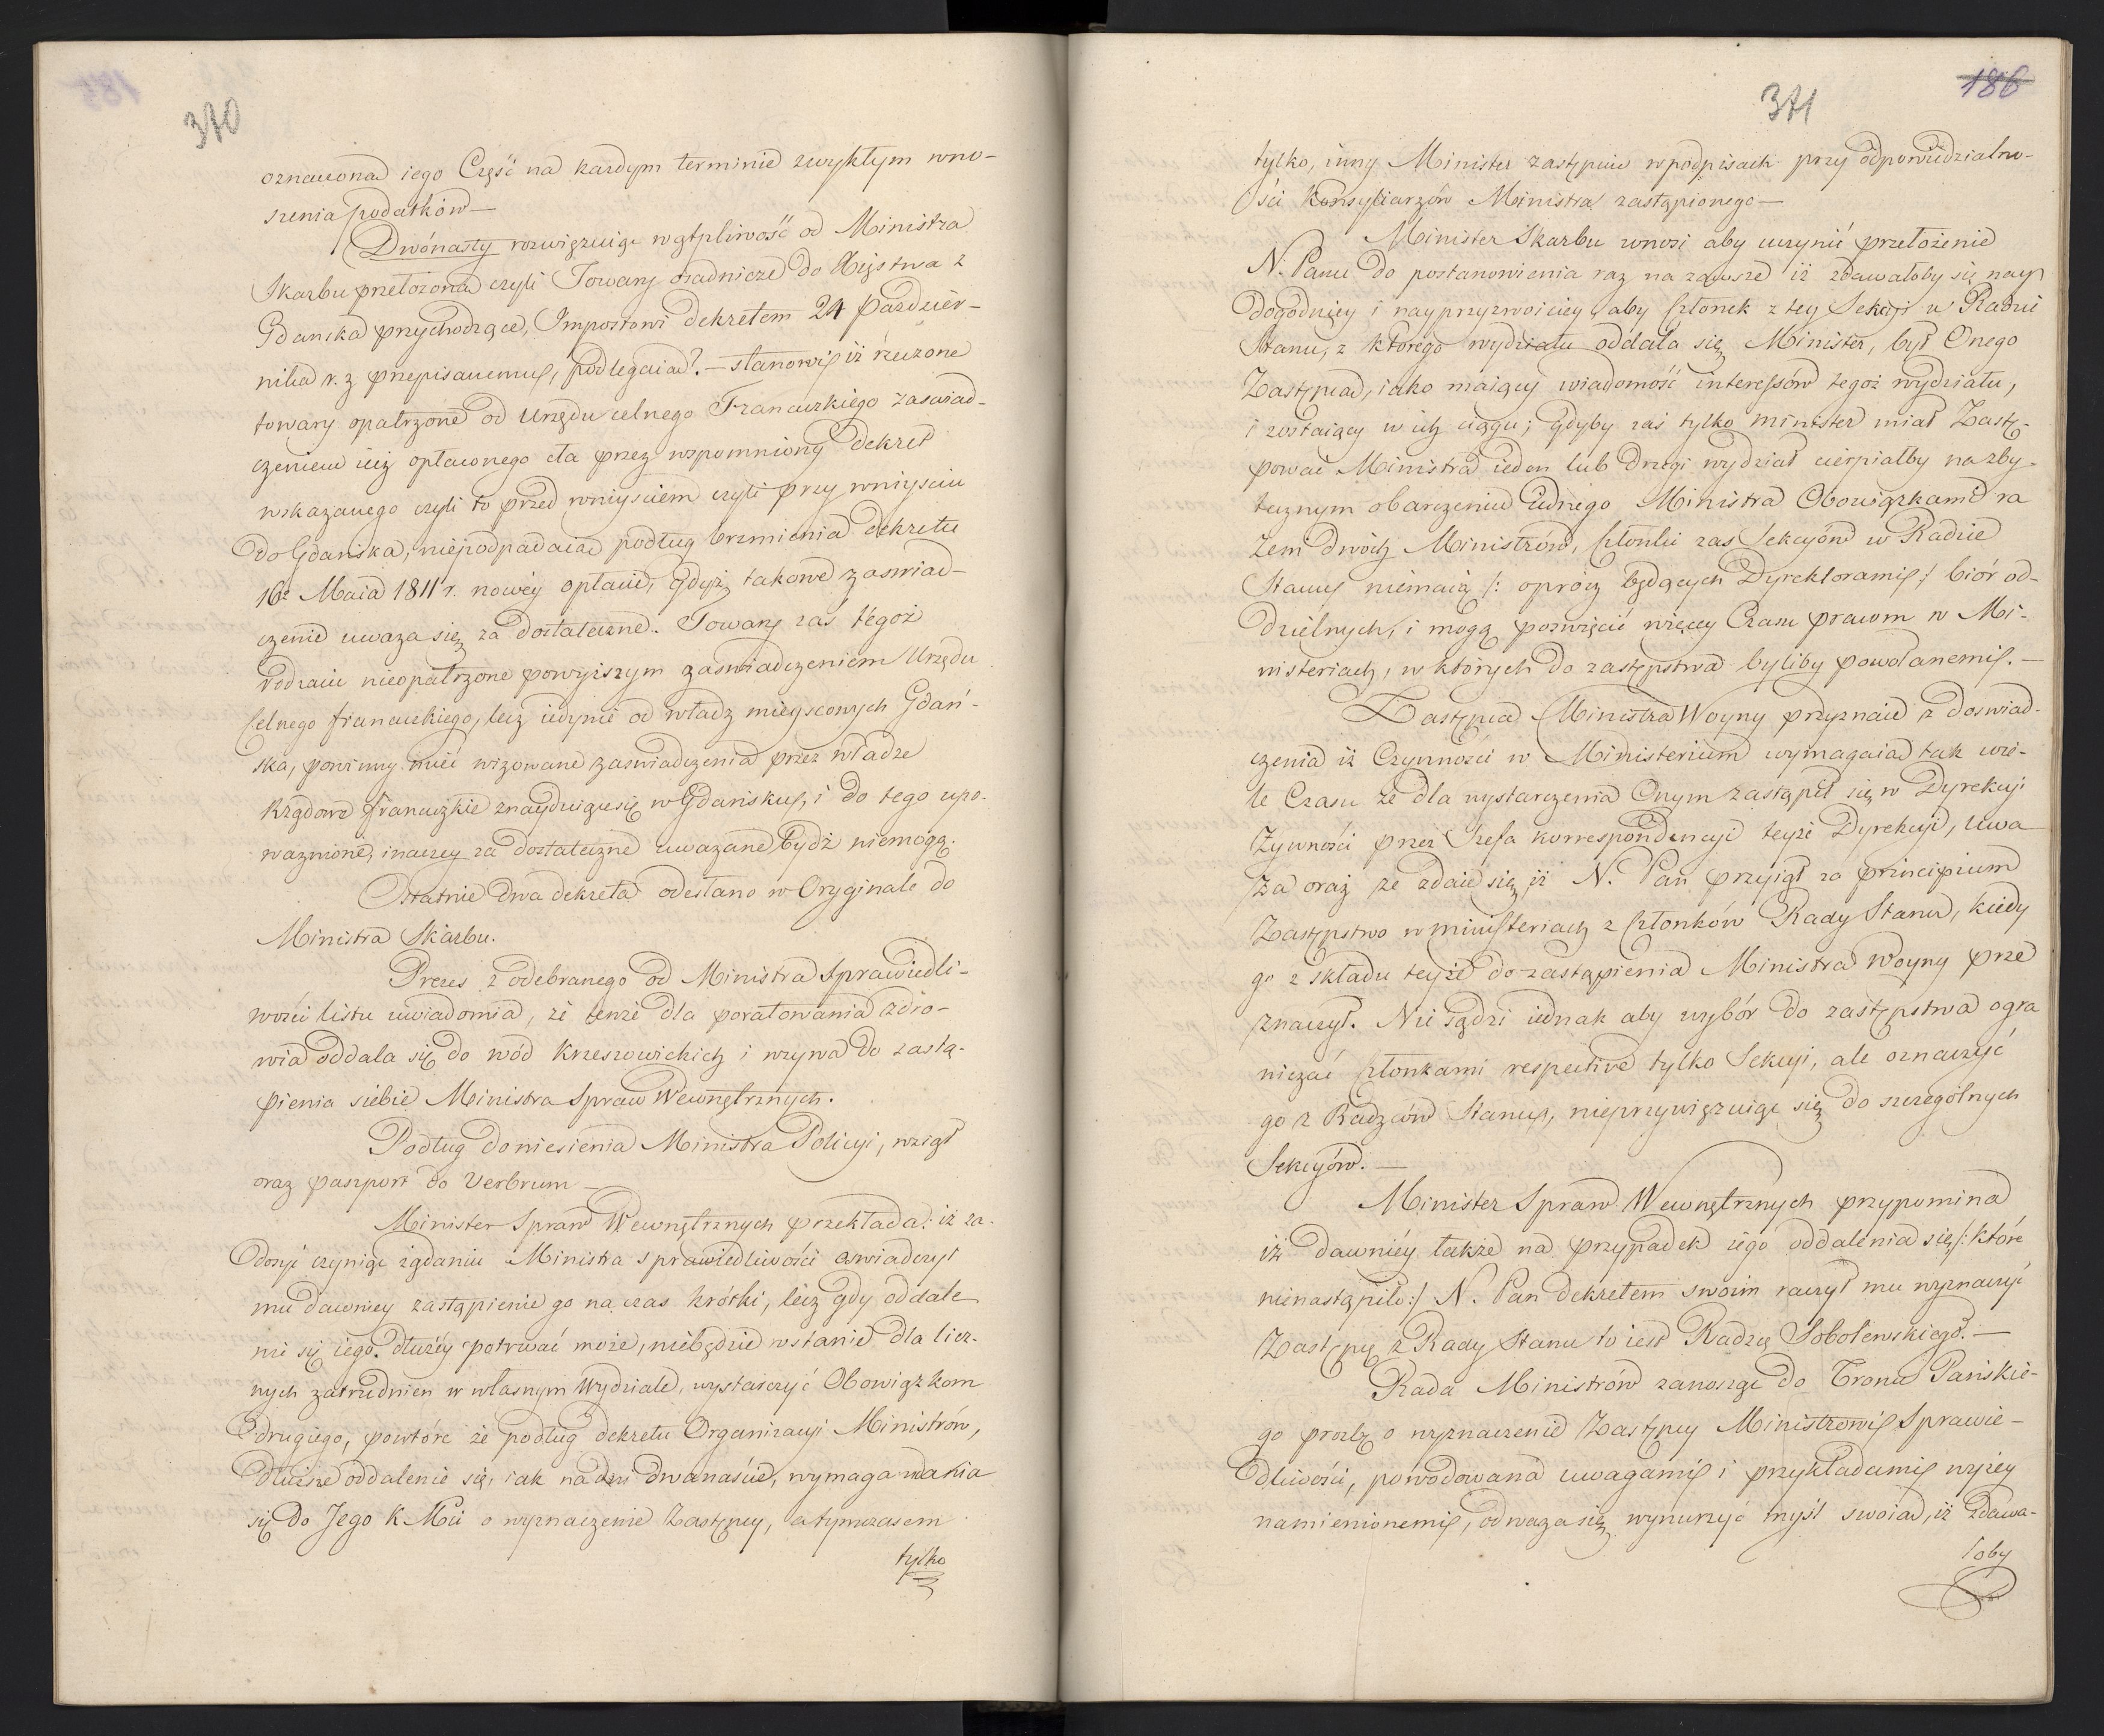 370
oznaczona iego Część na każdym terminie zwykłym wno-
szenia podatków —
Dwónasty rozwięzuiąc wątpliwość od Ministra
Skarbu przełożoną czyli Towary osadnicze do Xięstwa z
Gdańska przychodzące, Impostowi dekretem 24 Paździer-
nika r. z przepisanemu, podlegaią? — stanowi iż rzeczone
towary opatrzone od Urzędu celnego Francuzkiego zaświad-
czeniem iuż opłaconego cła przez wspomniony dekret
wskazanego czyli to przed wniyściem czyli przy wniyściu
do Gdańska, niepodpadaią podług brzmienia dekretu
16º Maia 1811 r. nowéy opłacie, gdyż takowe zaświad-
czenie uważa się za dostateczne. Towary zaś tegoż
rodzaiu nieopatrzone powyższym zaświadczeniem Urzędu
Celnego francuzkiego, lecz iedynie od władz mieyscowych Gdań-
ska, powinny mieć wizowane zaświadczenia przez władze
Rządowe francuzkie znayduiące się w Gdańsku, i do tego upo-
ważnione, inaczey za dostateczne uważane bydź niemogą.
Ostatnie dwa dekreta odesłano w Oryginale do
Ministra Skarbu.
Prezes z odebranego od Ministra Sprawiedli-
wości listu uwiadomia, że tenże dla poratowania zdro-
wia oddala się do wód Krzeszowickich i wzywa do zastą-
pienia siebie Ministra Spraw Wewnętrznych.
Podług doniesienia Ministra Policyi, wziął
oraz paszport do Verbrum —
Minister Spraw Wewnętrznych przekłada: iż za-
dosyć czyniąc żądaniu Ministra Sprawiedliwości oświadczył
mu dawniey zastąpienie go na czas krótki, lecz gdy oddale
nie się iego dłużéy potrwać może, niebędzie wstanie dla licz-
nych zatrudnień w własnym Wydziale, wystarczyć Obowiązkom
drugiego, powtóre że podług dekretu Organizacyi Ministrów,
dłuższe oddalenie się, iak nadni dwanaście, wymaga udania
się do Jego K Mci o wyznaczenie Zastępcy, a tymczasem
tylko
186
371
tylko, inny Minister zastępuie w podpisach przy odpowiedzialno-
ści Konsyliarzów Ministra zastąpionego —
Minister Skarbu wnosi aby uczynić przełożenie
N. Panu do postanowienia raz na zawsze iż zdawałoby się nay
dogodniey i nayprzyzwoiciey, aby Członek z tey Sekcyi w Radzie
Stanu, z którego wydziału oddala się Minister, był Onego
Zastępcą, iako maiący wiadomość interessów tegoż wydziału,
i zostaiący w ich ciągu; gdyby zaś tylko minister miał Zastę-
pować Ministra ieden lub drugi wydział cierpiałby na zby-
tecznym obarczeniu iednego Ministra Obowiązkami ra
zem dwóch Ministrów, Członki zaś Sekcyów w Radzie
Stanu niemaią /: oprócz będących Dyrektorami :/ biór od-
dzielnych, i mogą poświęcić więcey Czasu pracom w Mi-
nisteriach, w których do zastępstwa byliby powołanemi. —
Zastępca Ministra Woyny przyznaie z doświad-
czenia iż Czynności w Ministerium wymagaią tak wie-
le Czasu że dla wystarczenia Onym zastąpił się w Dyrekcyi
Żywności przez Szefa korrespondencyi teyże Dyrekcyi, uwa
ża oraz że zdaie się iż N. Pan przyiął za principium
Zastępstwo w ministeriach z Członków Rady Stanu, kiedy
go z składu teyże do zastąpienia Ministra Woyny prze
znaczył. Nie sądzi iednak aby wybór do zastępstwa ogra
niczać Członkami respective tylko Sekcyi, ale oznaczyć
go z Radzców Stanu, nieprzywięzuiąc się do szczególnych
Sekcyów. —
Minister Spraw Wewnętrznych przypomina
iż dawniéy także na przypadek iego oddalenia się /: które
nienastąpiło :/ N. Pan dekretem swoim raczył mu wyznaczyć
Zastępcę z Rady Stanu to iest Radzcę Sobolewskiego. —
Rada Ministrów zanosząc do Tronu Pańskie-
go prozbę o wyznaczenie Zastępcy Ministrowi Sprawie-
dliwości, powodowana uwagami i przykładami wyżey
namienionemi, odważa się wynurzyć myśl swoią, iż zdawa-
łoby